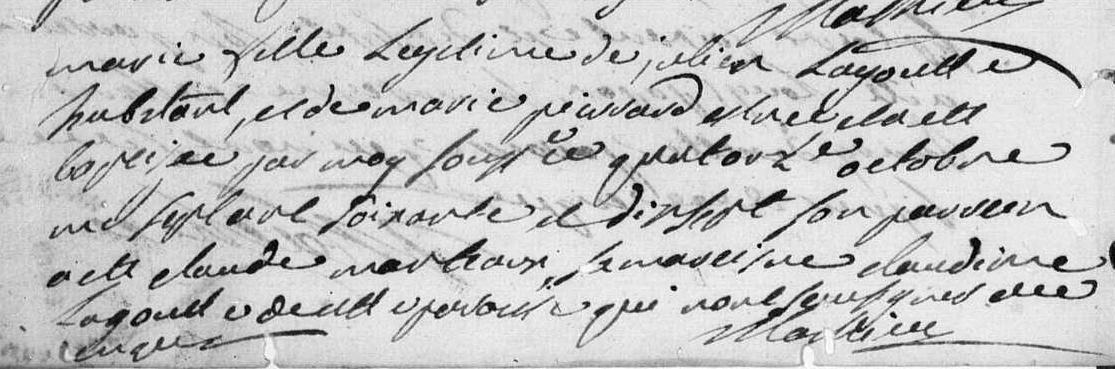 Mathieu
marie fille Legitime de julien Lagoutte
habitant, et de marie peuvrard est née et a ett
baptisee par moy souss.é ce quatorze octobre
mil sept cent soixante et dix sept son parrein
a ett claude marteaux, sa mareine claudine
Lagoutte de cette paroisse qui n'ont sousignes de ce
enquis Mathieu